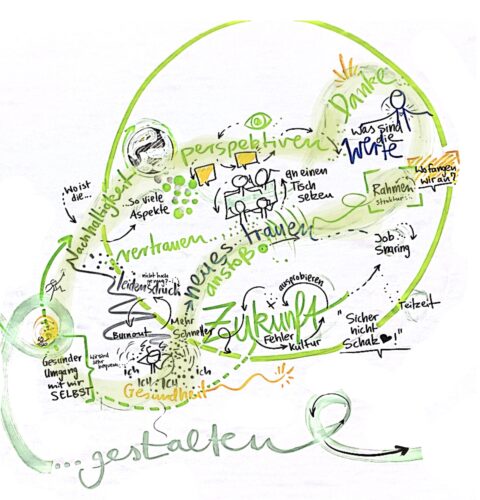 Danke
Was sind
die
Werte
perspektiven
an einen
Tisch
setzen
Wo fangen
wir an?
Rahmen
struktur...
Wo ist
die...
Nachhaltigkeit
...so viele
Aspekte
vertrauen
neues trauen
anstoß
Job
Sharing
Leidensdruck
ausprobieren
Zukunft
Fehler
Kultur
Teilzeit
"Sicher
nicht
Schatz ♥!"
Mehr
Schneller
Burnout
Gesunder
Umgang
mit mir
SELBST
Ich
Ich
Ich
ich
Gesundheit
...gestalten